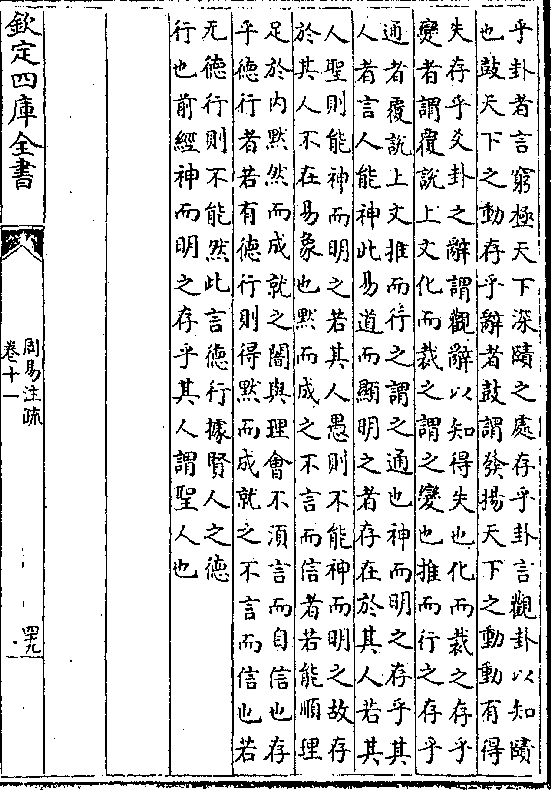 乎卦者言窮極天下深賾之處存乎卦言觀卦以知賾
也鼓天下之動存乎辭者鼓謂發揚天下之動動有得
失存乎爻卦之辭謂觀辭以知得失也化而裁之存乎
變者謂覆說上文化而裁之謂之變也推而行之存乎
通者覆說上文推而行之謂之通也神而明之存乎其
人者言人能神此易道而顯明之者存在於其人若其
人聖則能神而明之若其人愚則不能神而明之故存
於其人不在易象也默而成之不言而信者若能順理
足於內默然而成就之闇與理會不湏言而自信也存
乎德行者若有德行則得默而成就之不言而信也若
无德行則不能然此言德行據賢人之德
行也前經神而明之存乎其人謂聖人也
欽定四庫全書
周易注疏
卷十一
四十九